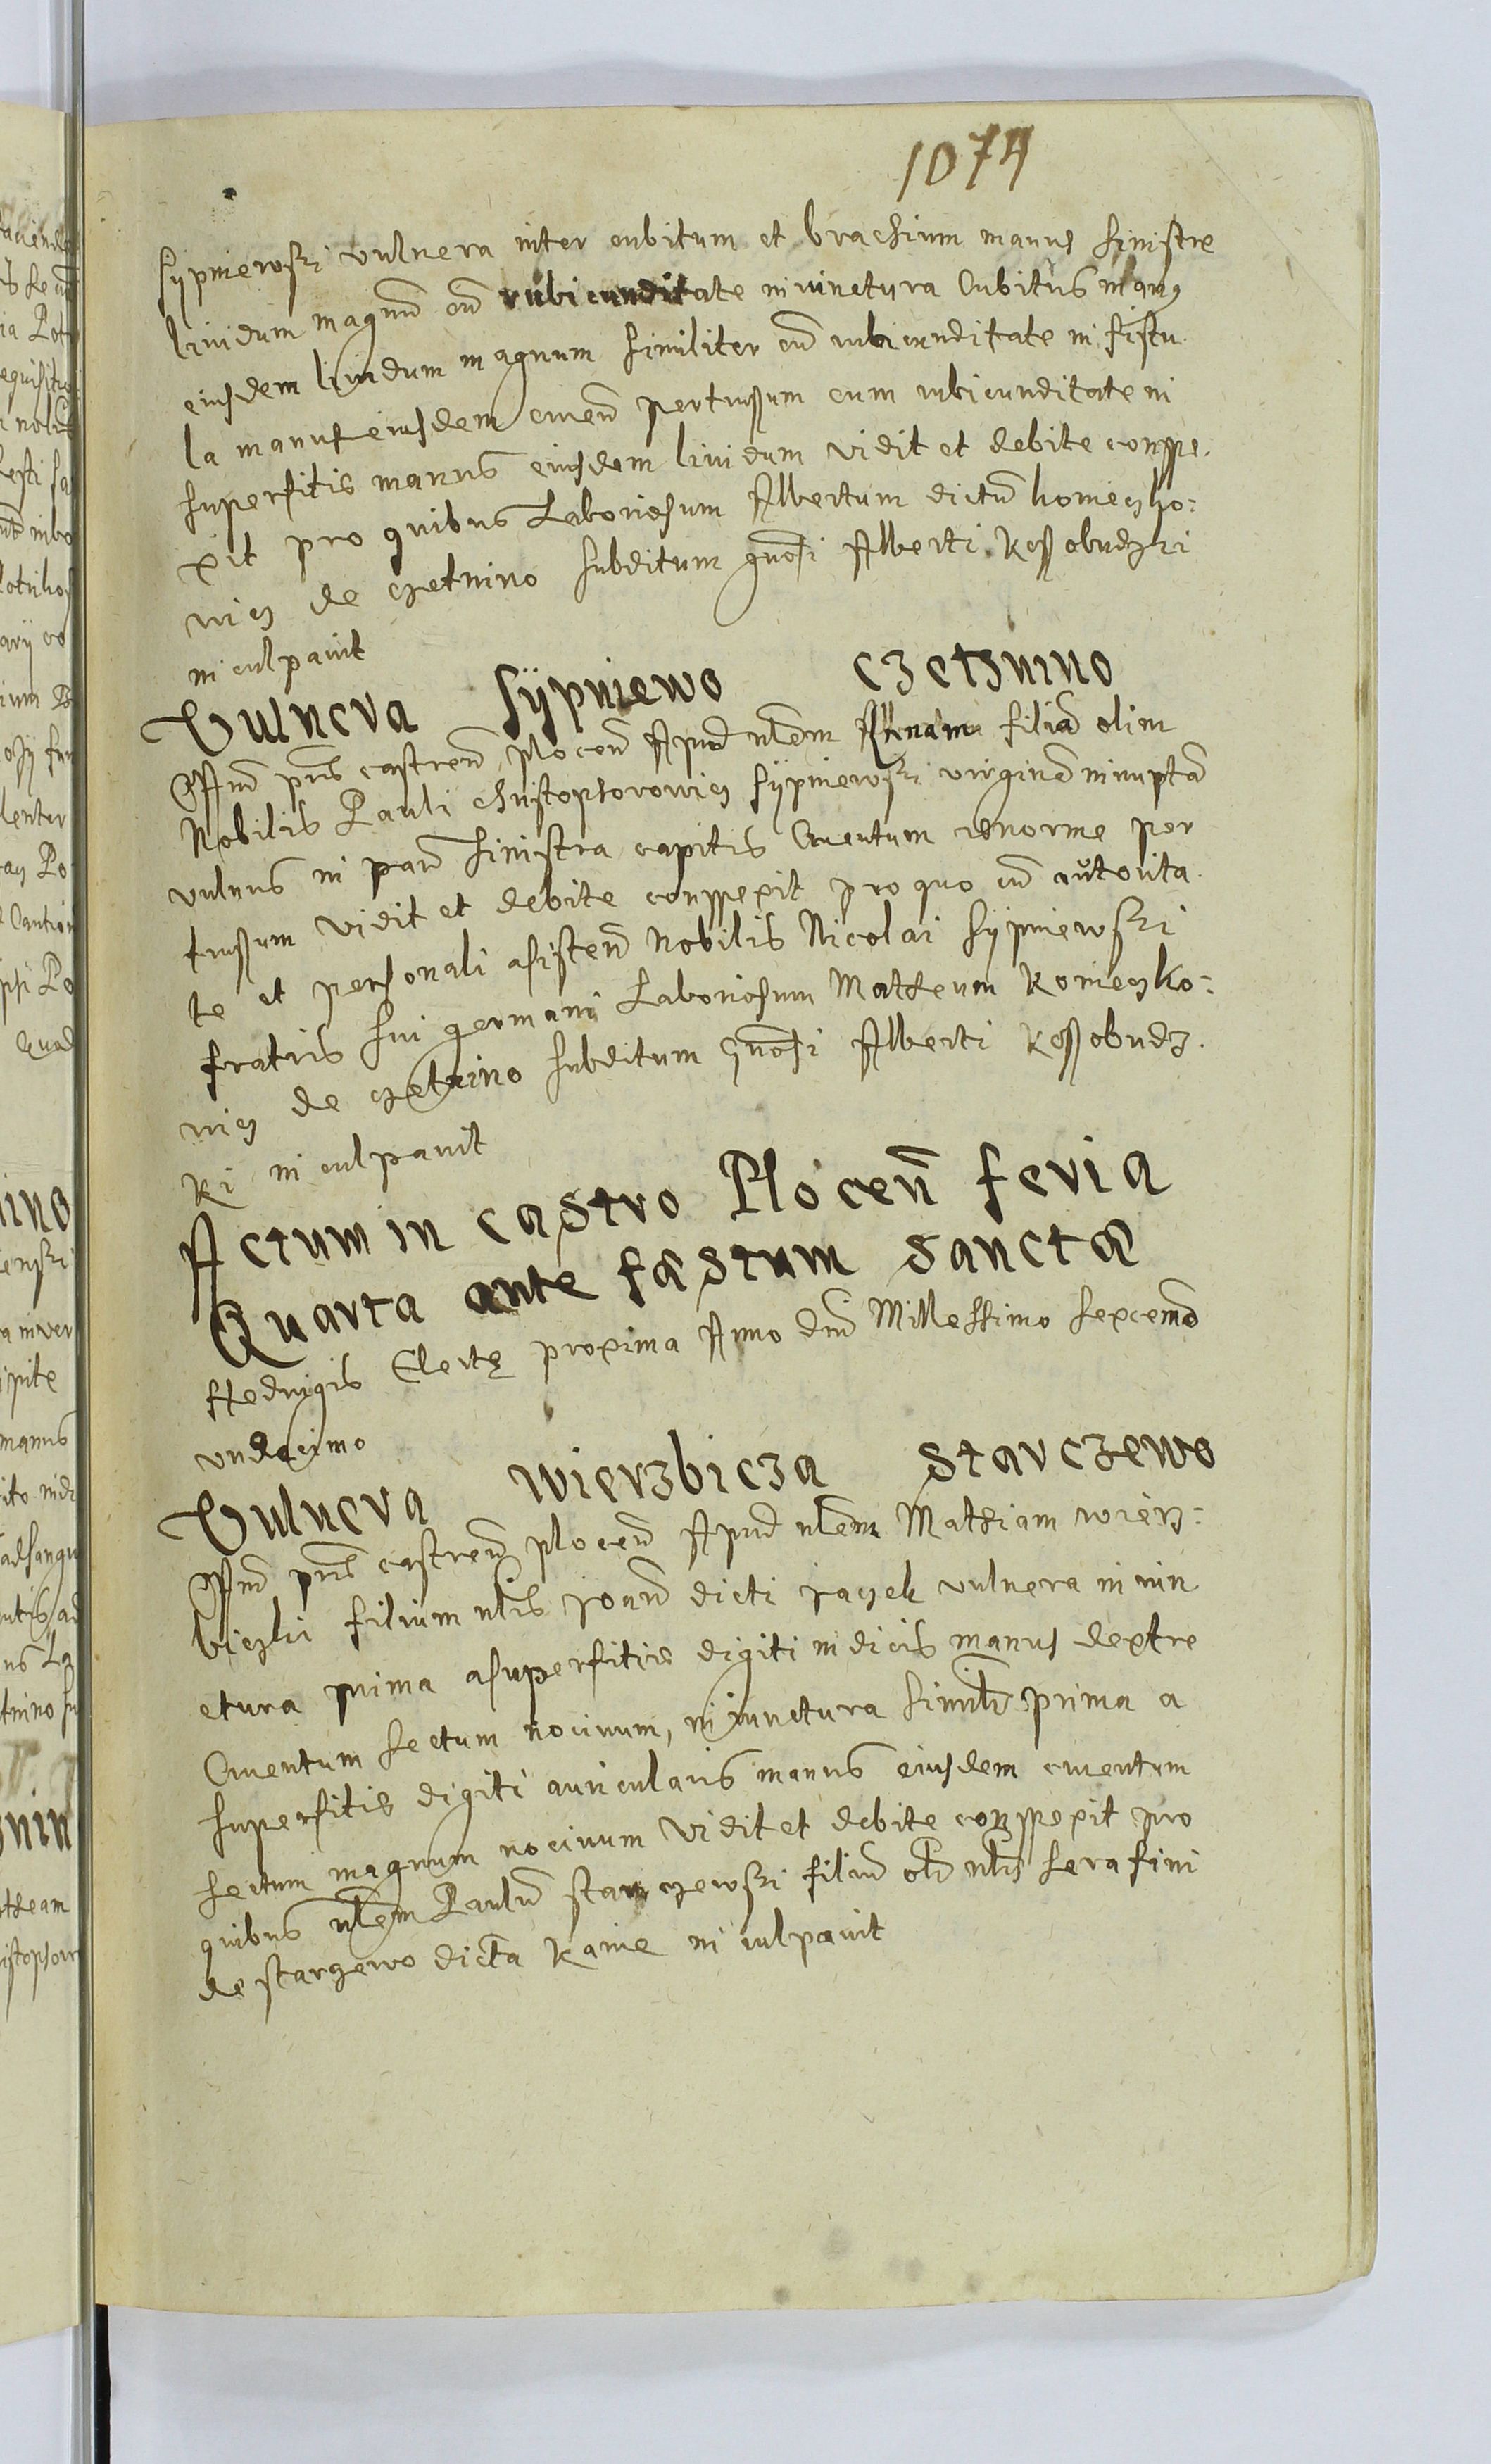 1074
Sypniewski vulnera inter cubitum et brachium manus sinistre
lividum magnũ cũ rubicunditate in iunctura Cubitus manus
eiusdem lividum magnum similiter cũ rubicunditate in fistu
la manus eiusdem cruen̄ pertussum cum rubicunditate in
superfitis manus eiusdem lividum vidit et debite conspe
xit pro quibus Laboriosum Albertum dictũ koniecsko:
wics de czetnino subditum gnosi Alberti kossobudzki
inculpavit
Vulnera Sypniewo Czetznino
Offm pns castren̄ plocen̄ Apud nlem Annam filiã olim
Nobilis Pauli Christophorowics Sypniewski virginẽ innuptã
vulnus in parte sinistra capitis Cruentum enorme per
tussum vidit et debite conspexit pro quo cũ autorita
te et personali asisten̄ Nobilis Nicolai Sypniewski
fratris sui germani Laboriosum Matheum koniecsko:
wics de czetnino subditum Gnosi Alberti kossobudz
ki inculpavit
Actum in castro Plocen̄ feria
Quarta ante fæstum sanctæ
Hedvigis Electę proxima Anno Dni Millessimo sexcemo
undecimo
Vulnera Wierzbicza Starczewo
Offm pns castren̄ plocen̄ Apud nlem Mathiam wierz:
biczki filium nlis Joan̄ dicti jacsek vulnera in iun
ctura prima asuperfitiis digiti indicis manus dextre
Cruentum sectum nocivum, in iunctura simlr prima a
superfitis digiti auricularis manus eiusdem cruentum
sectum magnum nocivum vidit et debite conspexit pro
quibus nlem Paulũ starczewski filiũ oli nlis serafini
de starczewo dicta kanie inculpavit